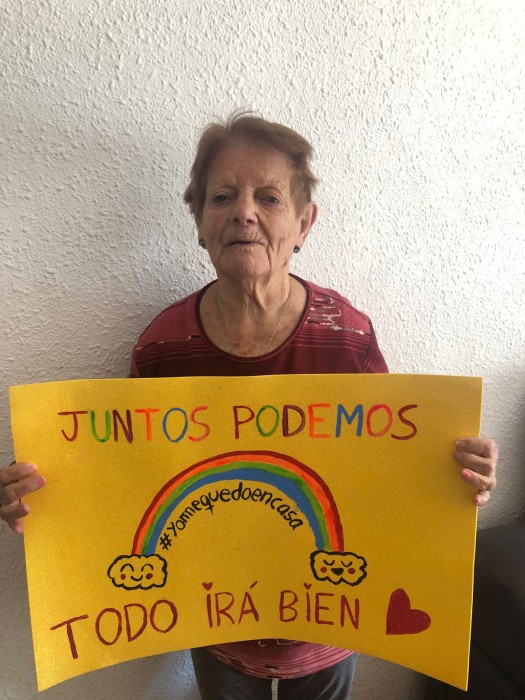 JUNTOS PODEMOS
#Yomequedoencasa
TODO IRÁ BIEN